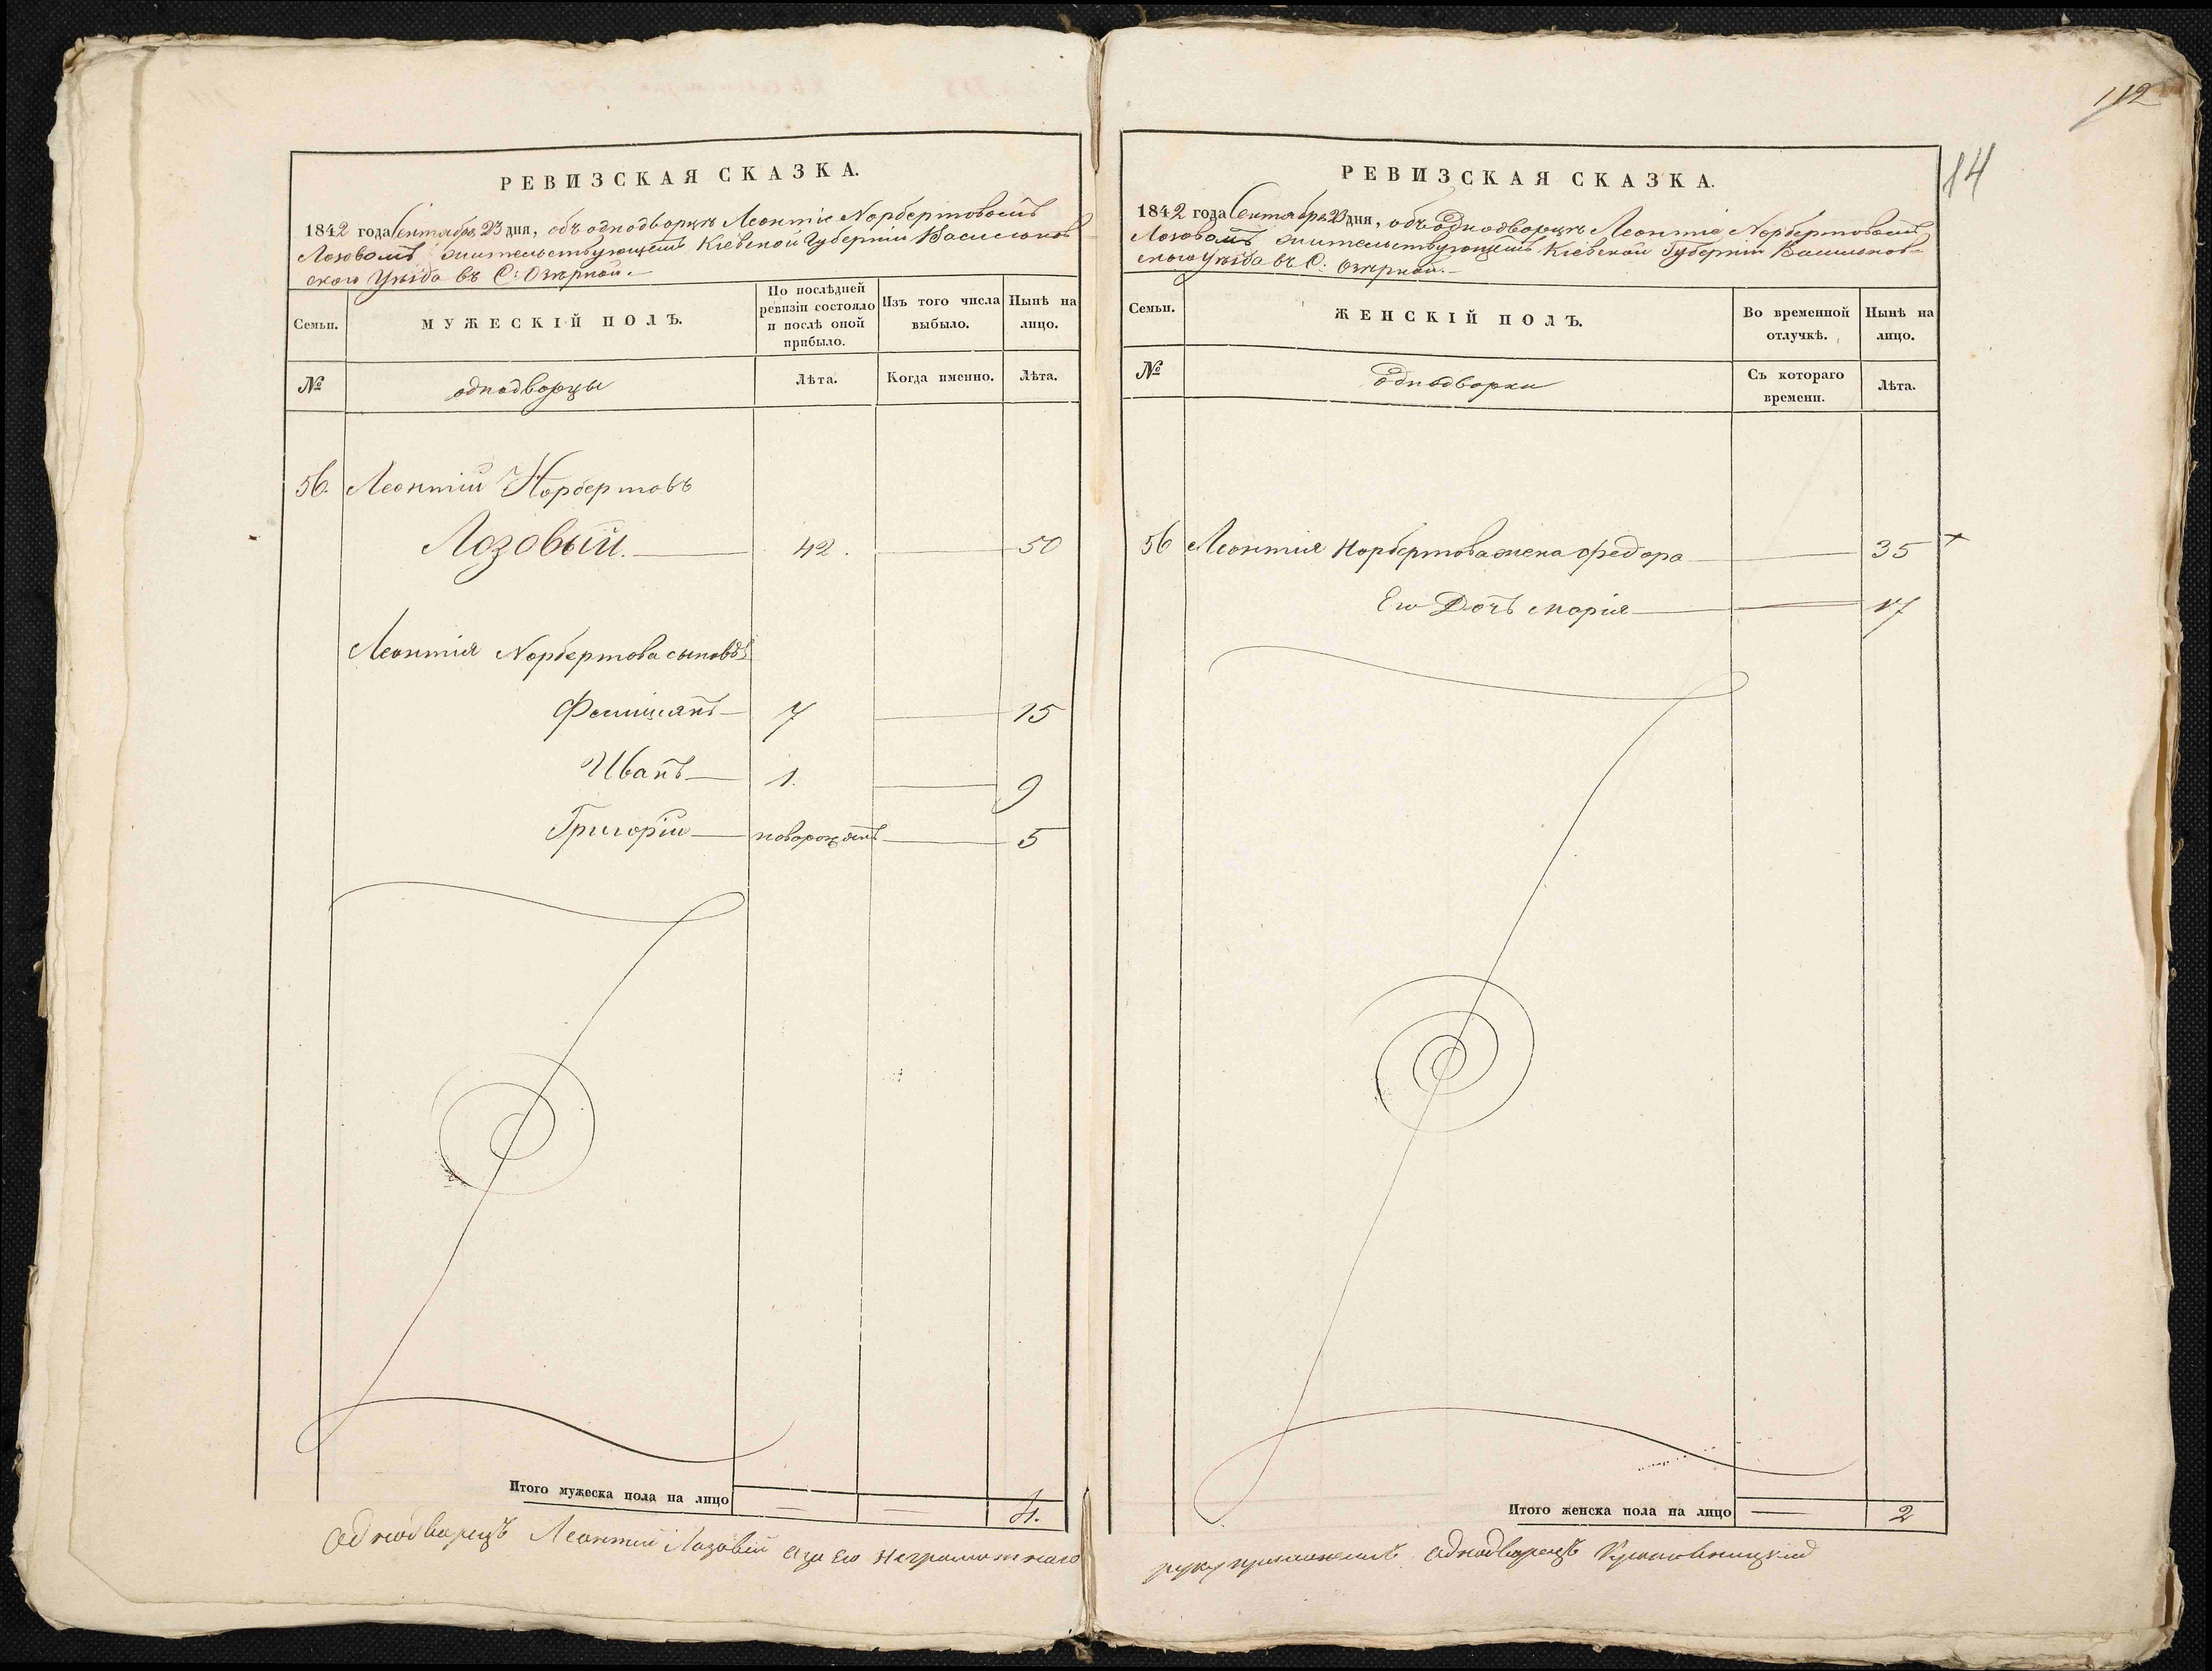 112
14
РЕВИЗСКАЯ СКАЗКА.
1842 года Сентября 23 дня, объ однодворцѣ Леонтіе Норбертовомъ
Лозовомъ жительствующемъ Кіевской Губерніи Васильков
ского Уѣзда въ С: Озѣрной.
Семьи.
МУЖЕСКІЙ ПОЛЪ.
По послѣдней
ревизіи состояло
и послѣ оной
прибыло.
Изъ того числа
выбыло.
Нынѣ на
лицо.
№
однодворцы
Лѣта.
Когда именно.
Лѣта.
56. Леонтій Норбертовъ
Лозовый. 42. 50
Леонтія Норбертова сыновья
Фелиціянъ 7 15
Иванъ 1. 9
Григорій новорожденъ 5
Итого мужеска пола на лицо 4.
Однодворецъ Леонтій Лозовій а за Его Неграмотного
РЕВИЗСКАЯ СКАЗКА.
1842 года Сентября 23 дня, объ Однодворцѣ Леонтіе Норбертовомъ
Лозовомъ жительствующемъ Кіевской Губерніи Васильков-
ского Уѣзда въ С. Озѣрной.
Семьи.
ЖЕНСКІЙ ПОЛЪ.
Во временной
отлучкѣ.
Нынѣ на
лицо.
№
Однодворки
Съ котораго
времени.
Лѣта.
56 Леонтія Норбертова жена Федора 35
Его Дочь Марія 17
Итого женска пола на лицо 2
руку приложилъ однодворецъ